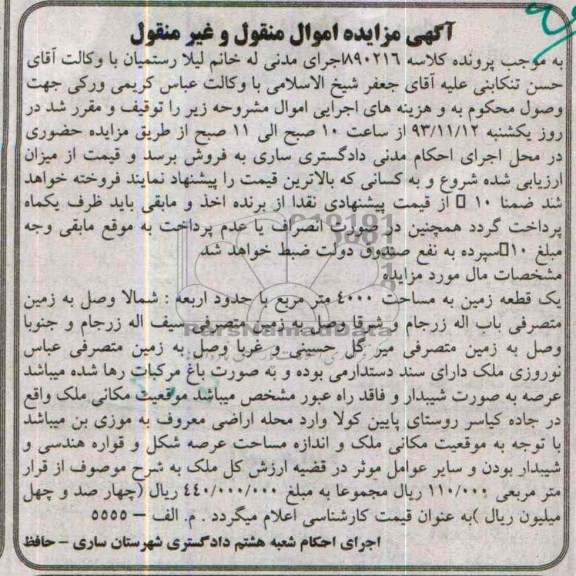 آگهی مزایده اموال منقول و غیر منقول
به موجب پرونده کلاسه ۸۹۰۲۱۶اجرای مدنی له خانم لیلا رستمیان با وکالت آقای
حسن تنکابنی علیه آقای جعفر شیخ الاسلامی با وکالت عباس کریمی ورکی جهت
وصول محکوم به و هزینه های اجرایی اموال مشروحه زیر را توقیف و مقرر شد در
روز یکشنبه ۹۳/۱۱/۱۲ از ساعت ۱۰ صبح الی ۱۱ صبح از طریق مزایده حضوری
در محل اجرای احکام مدنی دادگستری ساری به فروش برسد و قیمت از میزان
ارزیابی شده شروع و به کسانی که بالاترین قیمت را پیشنهاد نمایند فروخته خواهد
شد ضمنا ۱۰ از قیمت پیشنهادی نقدا از برنده اخذ و مابقی باید ظرف یکماه
پرداخت گردد همچنین در صورت انصراف یا عدم پرداخت به موقع مابقی وجه
مبلغ ۱۰ سپرده به نفع صندوق دولت ضبط خواهد شد
مشخصات مال مورد مزایده
یک قطعه زمین به مساحت ۴۰۰۰ متر مربع با حدود اربعه : شمالا وصل به زمین
متصرفی باب اله زرجام و شرقا وصل به زمین متصرفی سیف اله زرجام و جنوبا
وصل به زمین متصرفی میر گل حسینی و غربا وصل به زمین متصرفی عباس
نوروزی ملک دارای سند دستدارمی بوده و به صورت باغ مرکبات رها شده میباشد
عرصه به صورت شیبدار و فاقد راه عبور مشخص میباشد موقعیت مکانی ملک واقع
در جاده کیاسر روستای پایین کولا وارد محله اراضی معروف به موزی بن میباشد
با توجه به موقعیت مکانی ملک و اندازه مساحت عرصه شکل و قواره هندسی و
شیبدار بودن و سایر عوامل موثر در قضیه ارزش کل ملک به شرح موصوف از قرار
متر مربعی ۱۱۰/۰۰۰ ریال مجموعا به مبلغ ۴۴۰/۰۰۰/۰۰۰ ریال (چهار صد و چهل
میلیون ریال )به عنوان قیمت کارشناسی اعلام میگردد . م. الف – ۵۵۵۵
اجرای احکام شعبه هشتم دادگستری شهرستان ساری – حافظ